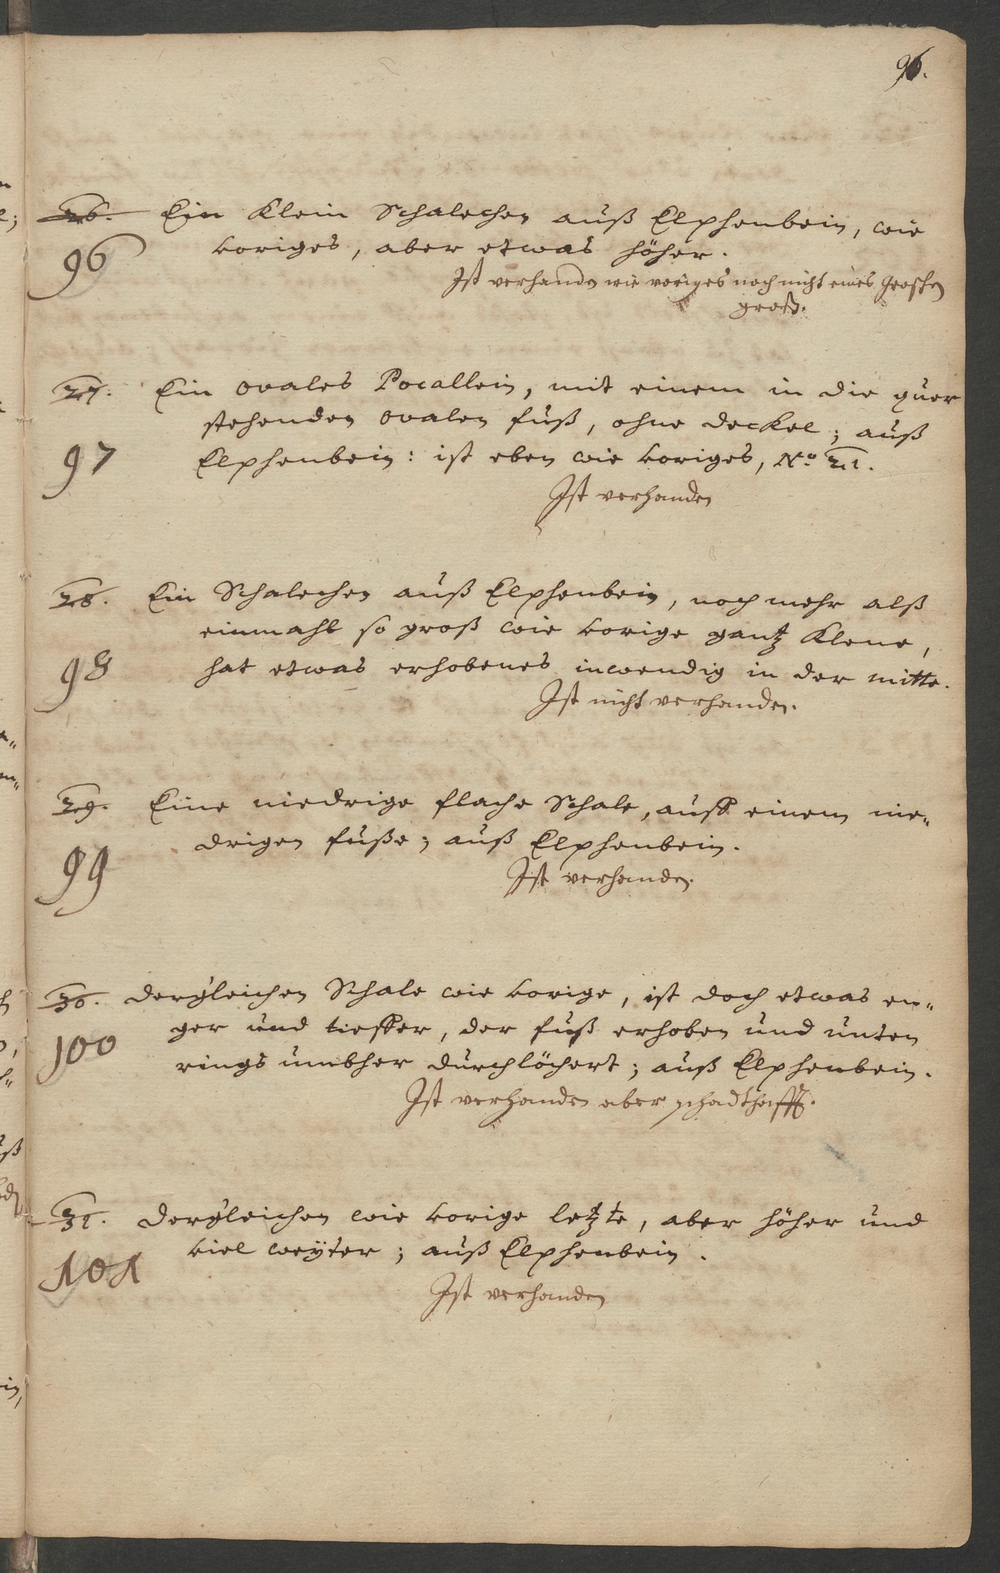 96.
26. Ein Klein Schalechen auß Elphenbein, wie
96
voriges, aber etwas höher.
Ist verhanden wie voriges noch nicht eines Groschen
groß.
27. Ein ovales Pocallein, mit einem in die quer
stehenden ovalen fuß, ohne deckel; auß
97
Elphenbein: ist eben wie voriges, No 21.
Ist verhanden
28. Ein Schalechen auß Elphenbein, noch mehr alß
einmahl so groß wie vorige gantz Klene,
98
hat etwas erhobenes inwendig in der mitte.
Ist nicht verhanden.
29. Eine niedrige flache Schale, auff einem nie-
drigen fuße; auß Elphenbein.
99
Ist verhanden.
30. dergleichen Schale wie vorige, ist doch etwas en-
100
ger und tieffer, der fuß erhoben und unten
rings umbher durchlöchert; auß Elphenbein.
Ist verhanden aber schadthafft.
31. dergleichen wie vorige letzte, aber höher und
viel weyter; auß Elphenbein.
101
Ist verhanden